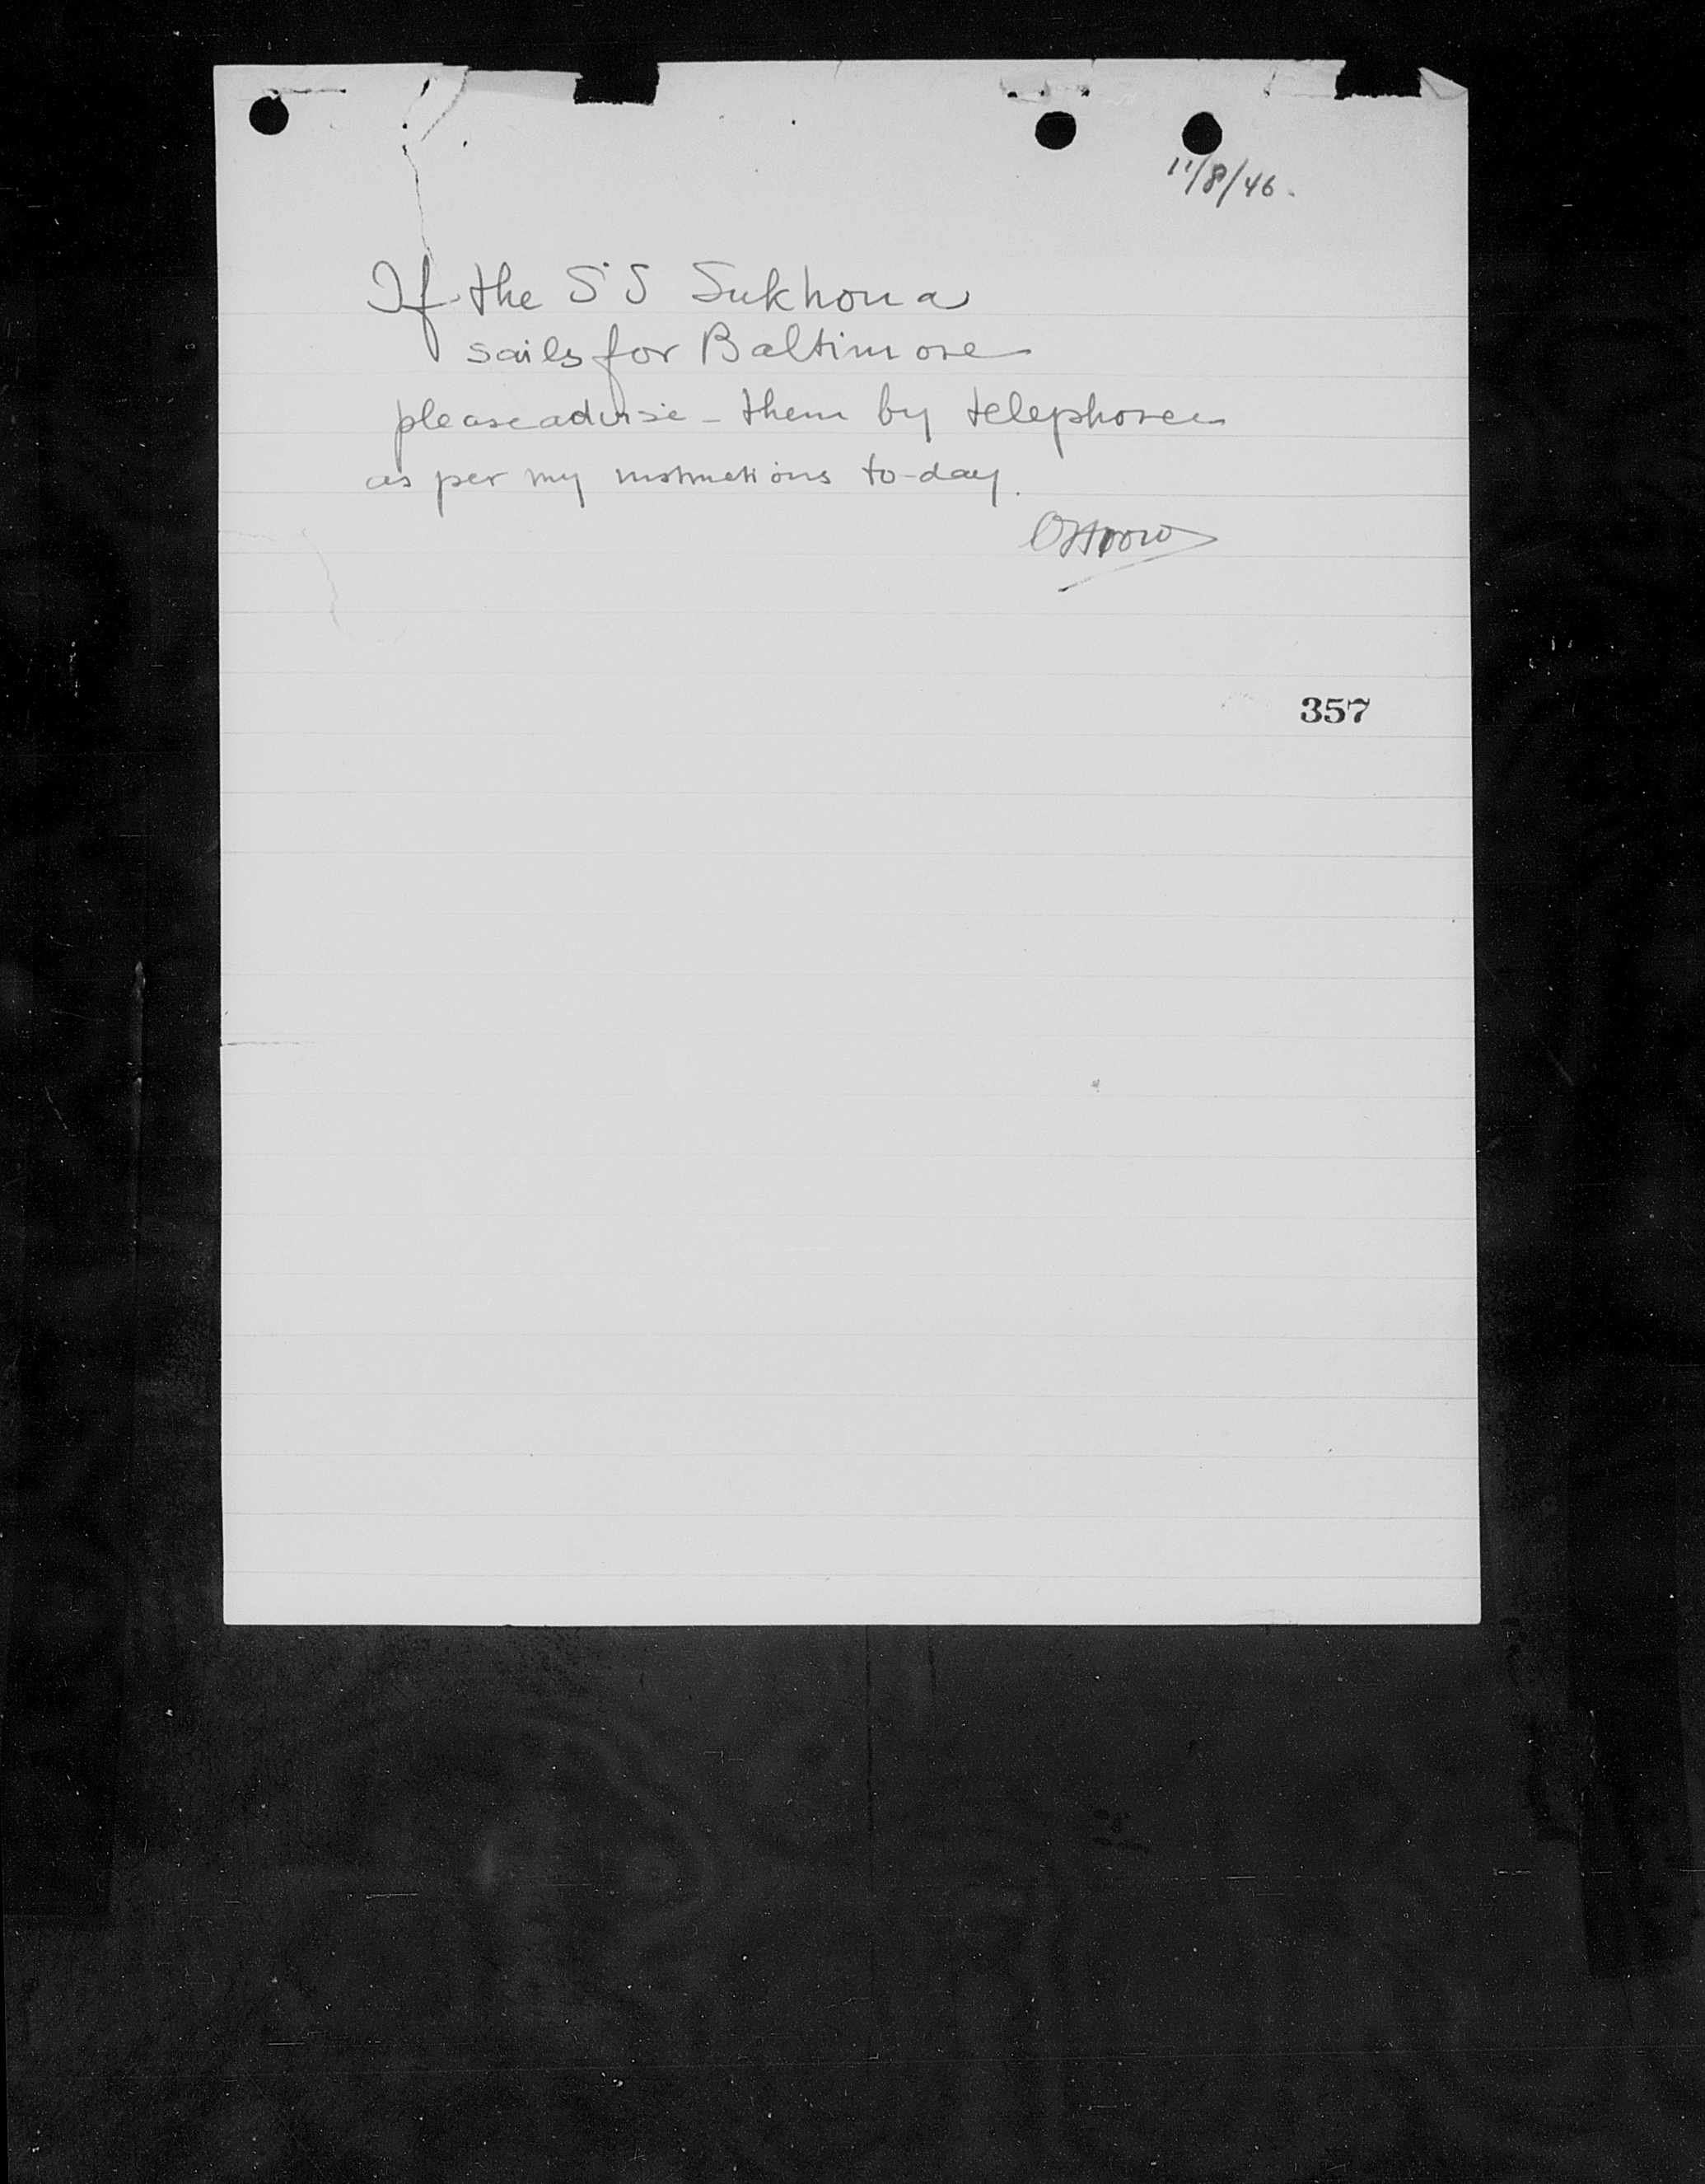 11/8/46.
If the SS Sukhona
sails for Baltimore
please advise - them by telephone
as per my instructions to-day.
357